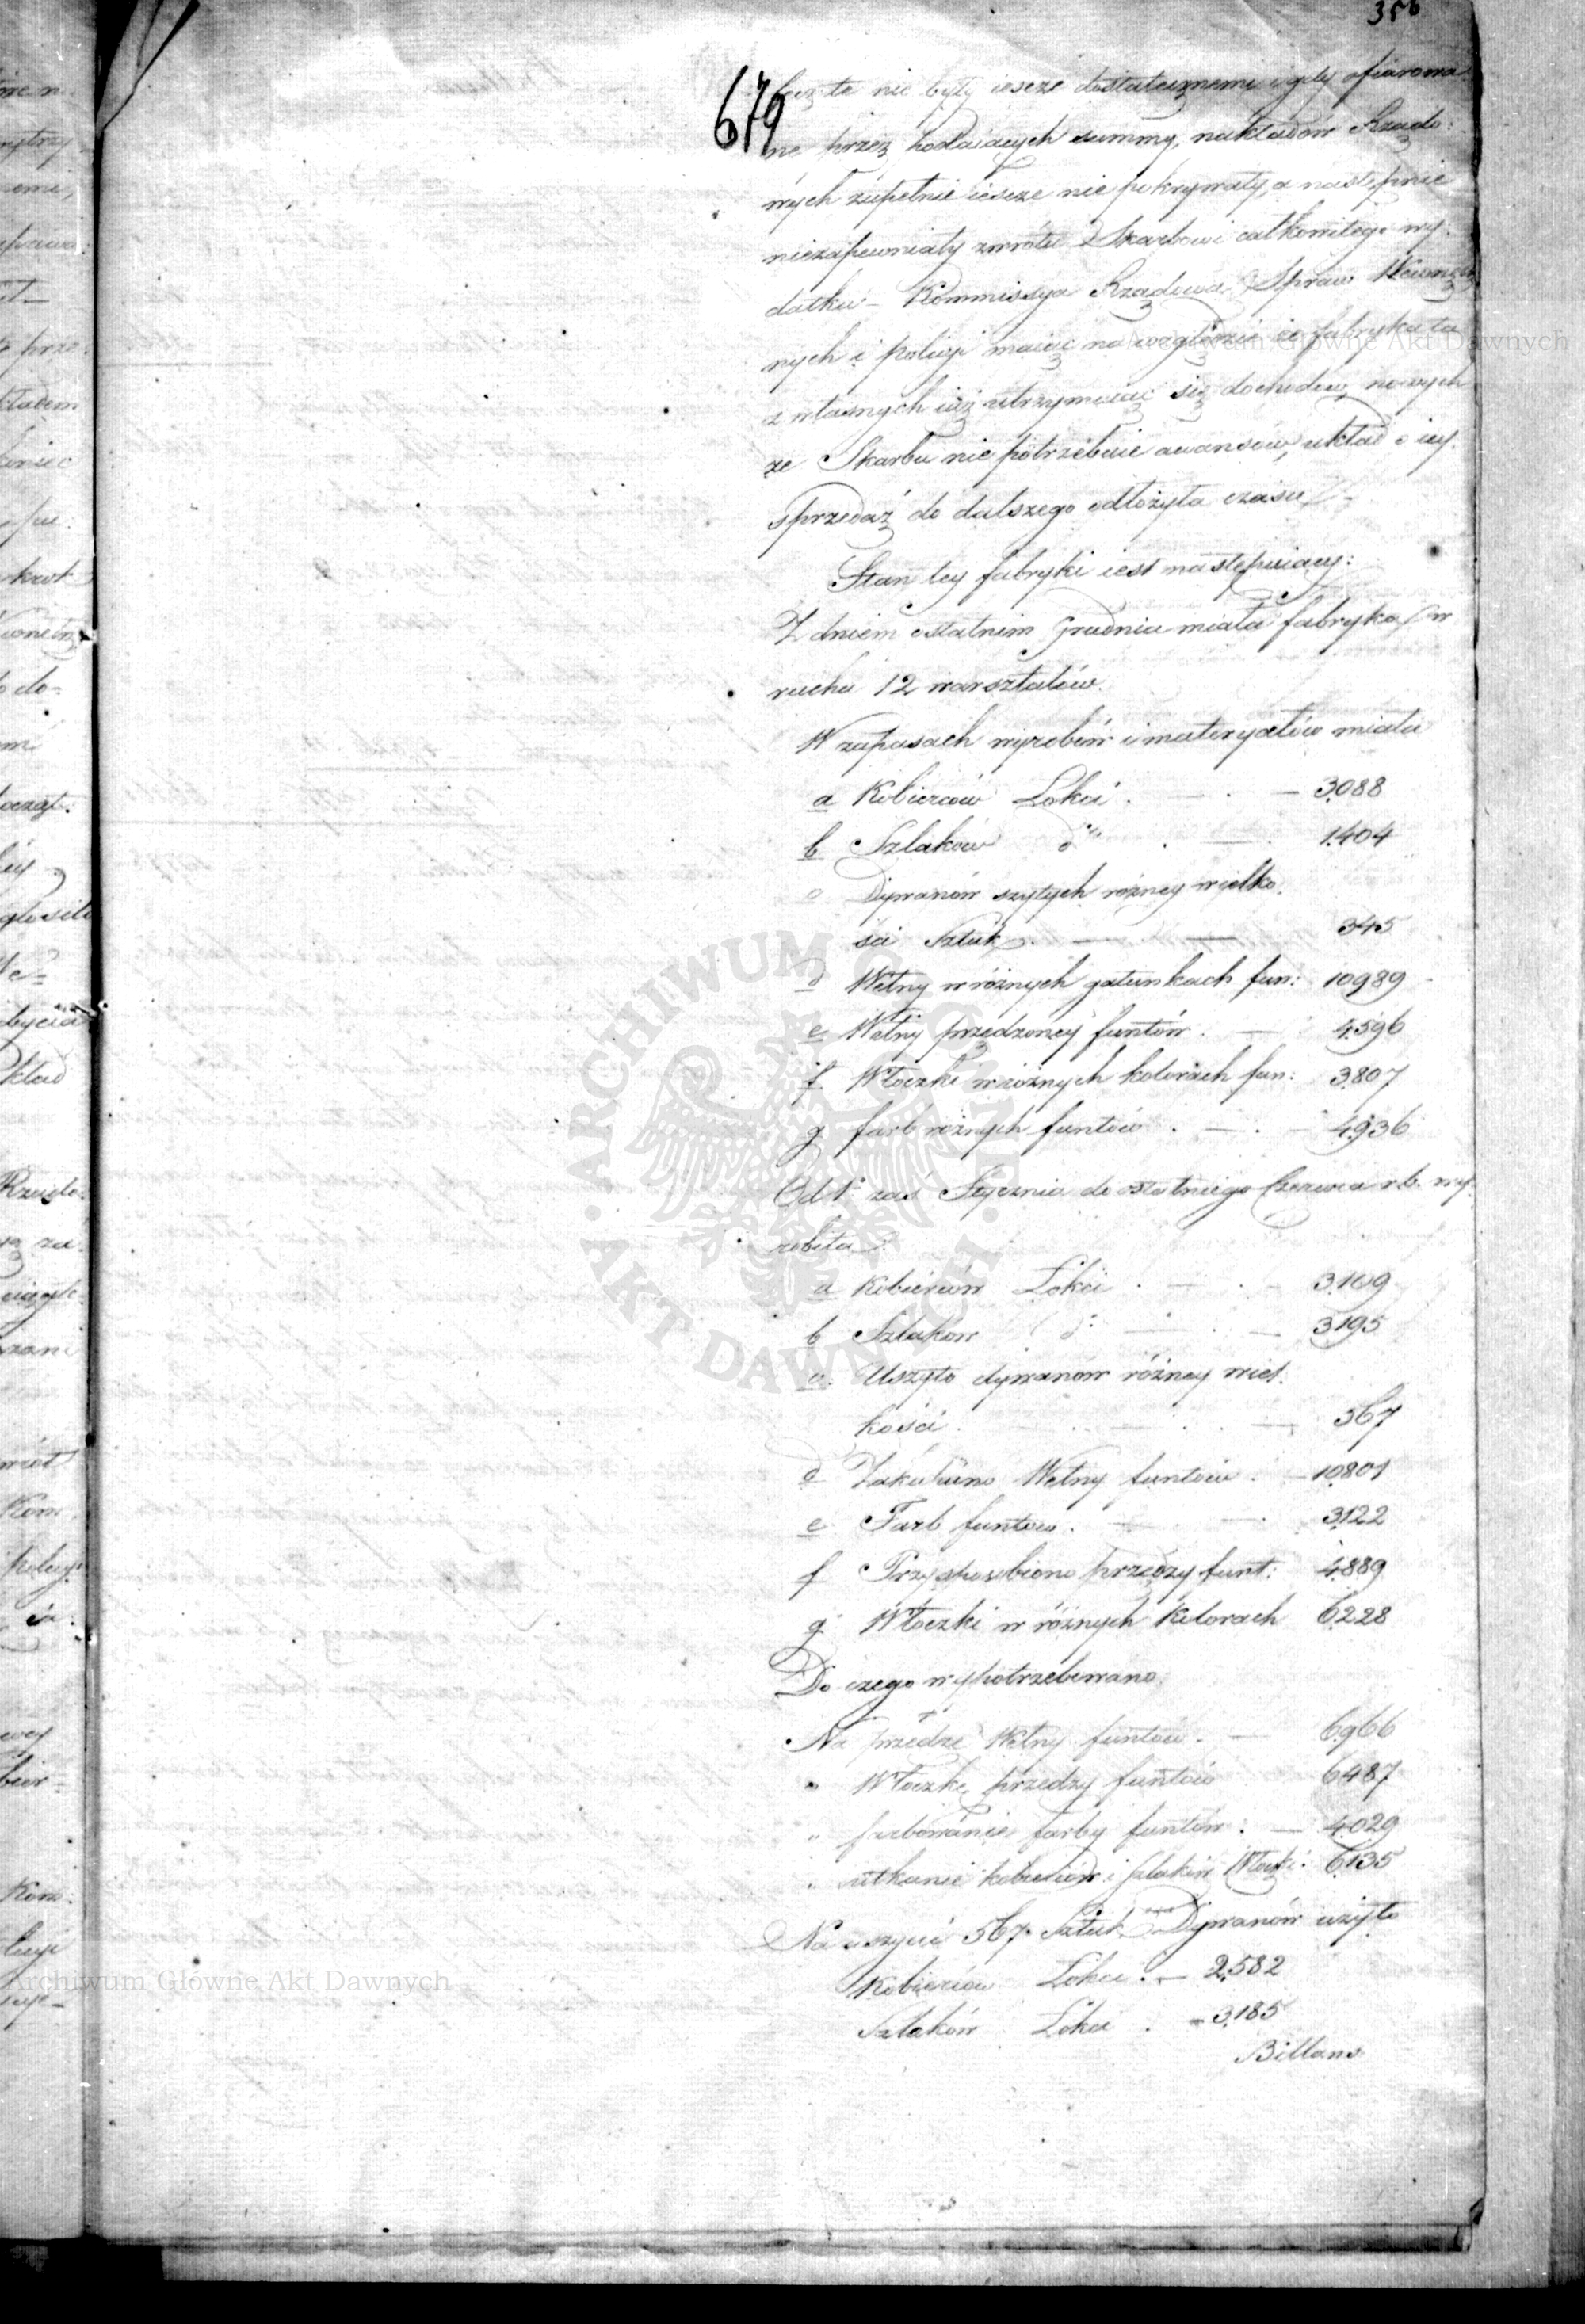 356
679
lecz te nie były ieszcze dostatecznemi i gdy ofiarowa
ne przez podaiących summy, nakładów Rządo:
wych zupełnie ieszcze nie pokrywały, a następnie
niezapewniały zwrotu Skarbowi całkowitego wy:
datku – Kommissya Rządowa Spraw Wewnętrz
nych i policyi maiąc na względzie że fabryka ta
z własnych iuż utrzymuiąc się dochodów, nowych
ze Skarbu nie potrzebuie awansów, układ o iey
sprzedaż do dalszego odłożyła czasu
Stan tey fabryki iest następuiący:
Z dniem ostatnim Grudnia miała fabryka w
ruchu 12 warsztatów.
W zapasach wyrobów i materyałów miała
a Kobierców Łokci . — . — 3,088
b Szlaków do . — 1,404
c Dywanów szytych różney wielko:
ści Sztuk . — — 345
d Wełny w różnych gatunkach fun: 10,989
e Wełny przędzoney funtów . — 4,596
f Włóczki w różnych kolorach fun: 3,807
g farb różnych funtów . — . — 4,936
Od 1o zaś Stycznia do ostatniego Czerwca r.b. wy:
robiła
a Kobierców Łokci . — . — 3,169
b Szlaków do — . — 3,195
c. Uszyto dywanów różney wiel:
kości . — . . — 567
d Zakupiono Wełny funtów . — 10,801
e Farb funtów . — . 3,122
f Przysposobiono przędzy funt: 4,889
g Włóczki w różnych kolorach 6,228
Do czego wypotrzebowano
Na przędzę Wełny funtów . — 6,966
" Włóczkę przędzy funtów 6,487
" farbowanie farby funtów : — 4,029
" utkanie kobierców i szlaków Włóczki: 6,135
Na uszycie 567 Sztuk Dywanów użyto
Kobierców Łokci . — 2,582
Szlaków Łokci . — 3,185
Billans
Archiwum Główne Akt Dawnych
Archiwum Główne Akt Dawnych
ARCHIWUM GŁÓWNE
AKT DAWNYCH